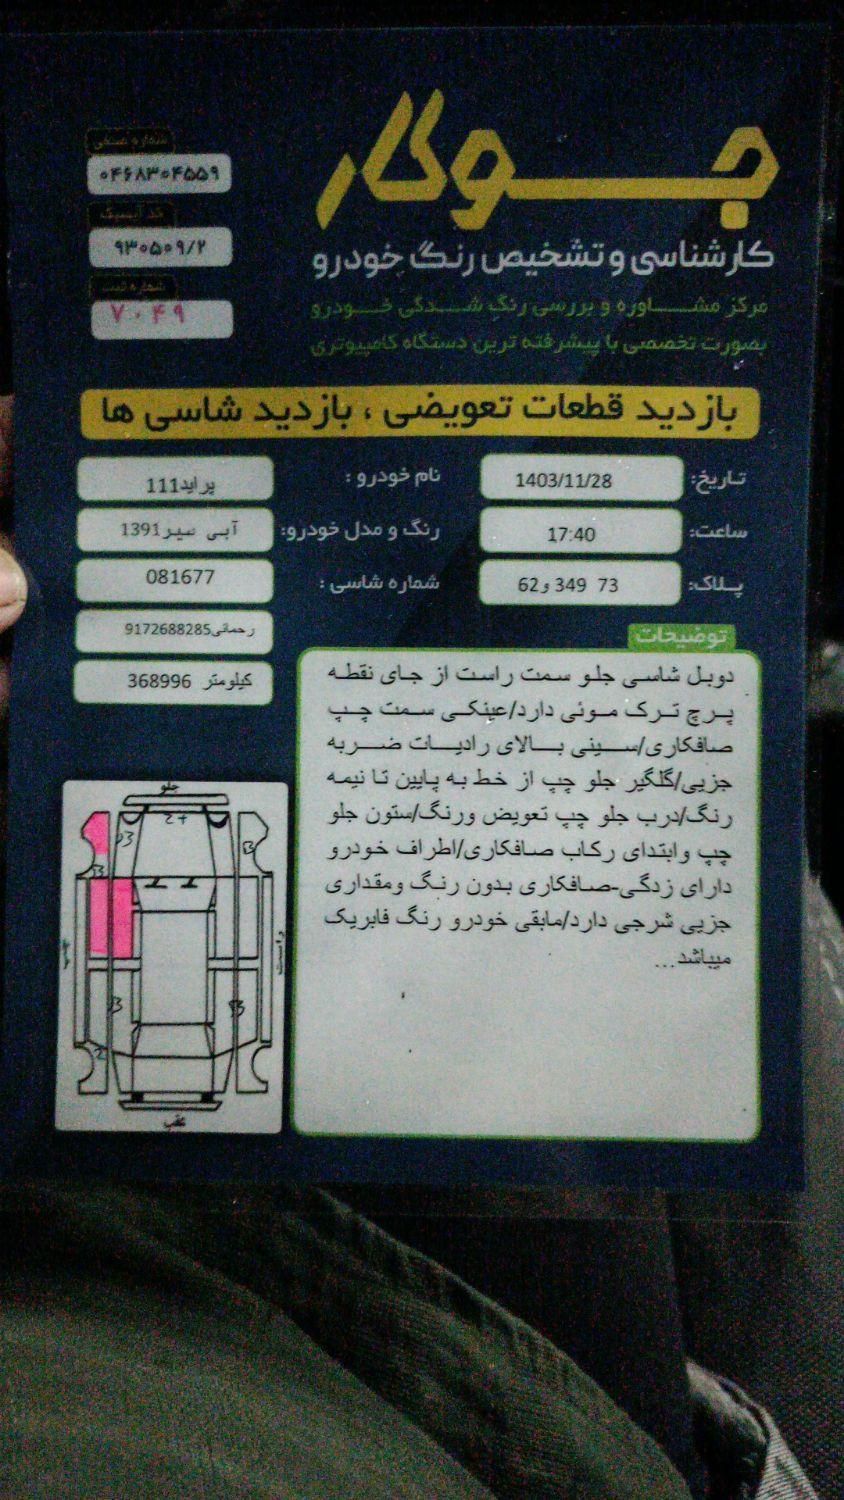 جوکار
کارشناسی و تشخیص رنگ خودرو
مرکز مشاوره و بررسی رنگ شدگی خودرو
بصورت تخصصی با پیشرفته ترین دستگاه کامپیوتری
شماره صنفی
۰۴۶۸۳۰۴۵۵۹
کد آیسیک
۹۳۰۵۰۹/۲
شماره ثبت
۷۰۴۹
بازدید قطعات تعویضی ، بازدید شاسی ها
تاریخ: 1403/11/28
نام خودرو : پراید111
ساعت: 17:40
رنگ و مدل خودرو: آبی سیر1391
پلاک: 73 349 و62
شماره شاسی : 081677
رحمانی9172688285
کیلومتر 368996
توضیحات
دوبل شاسی جلو سمت راست از جای نقطه
پرچ ترک موئی دارد/عینکی سمت چپ
صافکاری/سینی بالای رادیات ضربه
جزیی/گلگیر جلو چپ از خط به پایین تا نیمه
رنگ/درب جلو چپ تعویض ورنگ/ستون جلو
چپ وابتدای رکاب صافکاری/اطراف خودرو
دارای زدگی-صافکاری بدون رنگ ومقداری
جزیی شرجی دارد/مابقی خودرو رنگ فابریک
میباشد...
جلو
راست
عقب